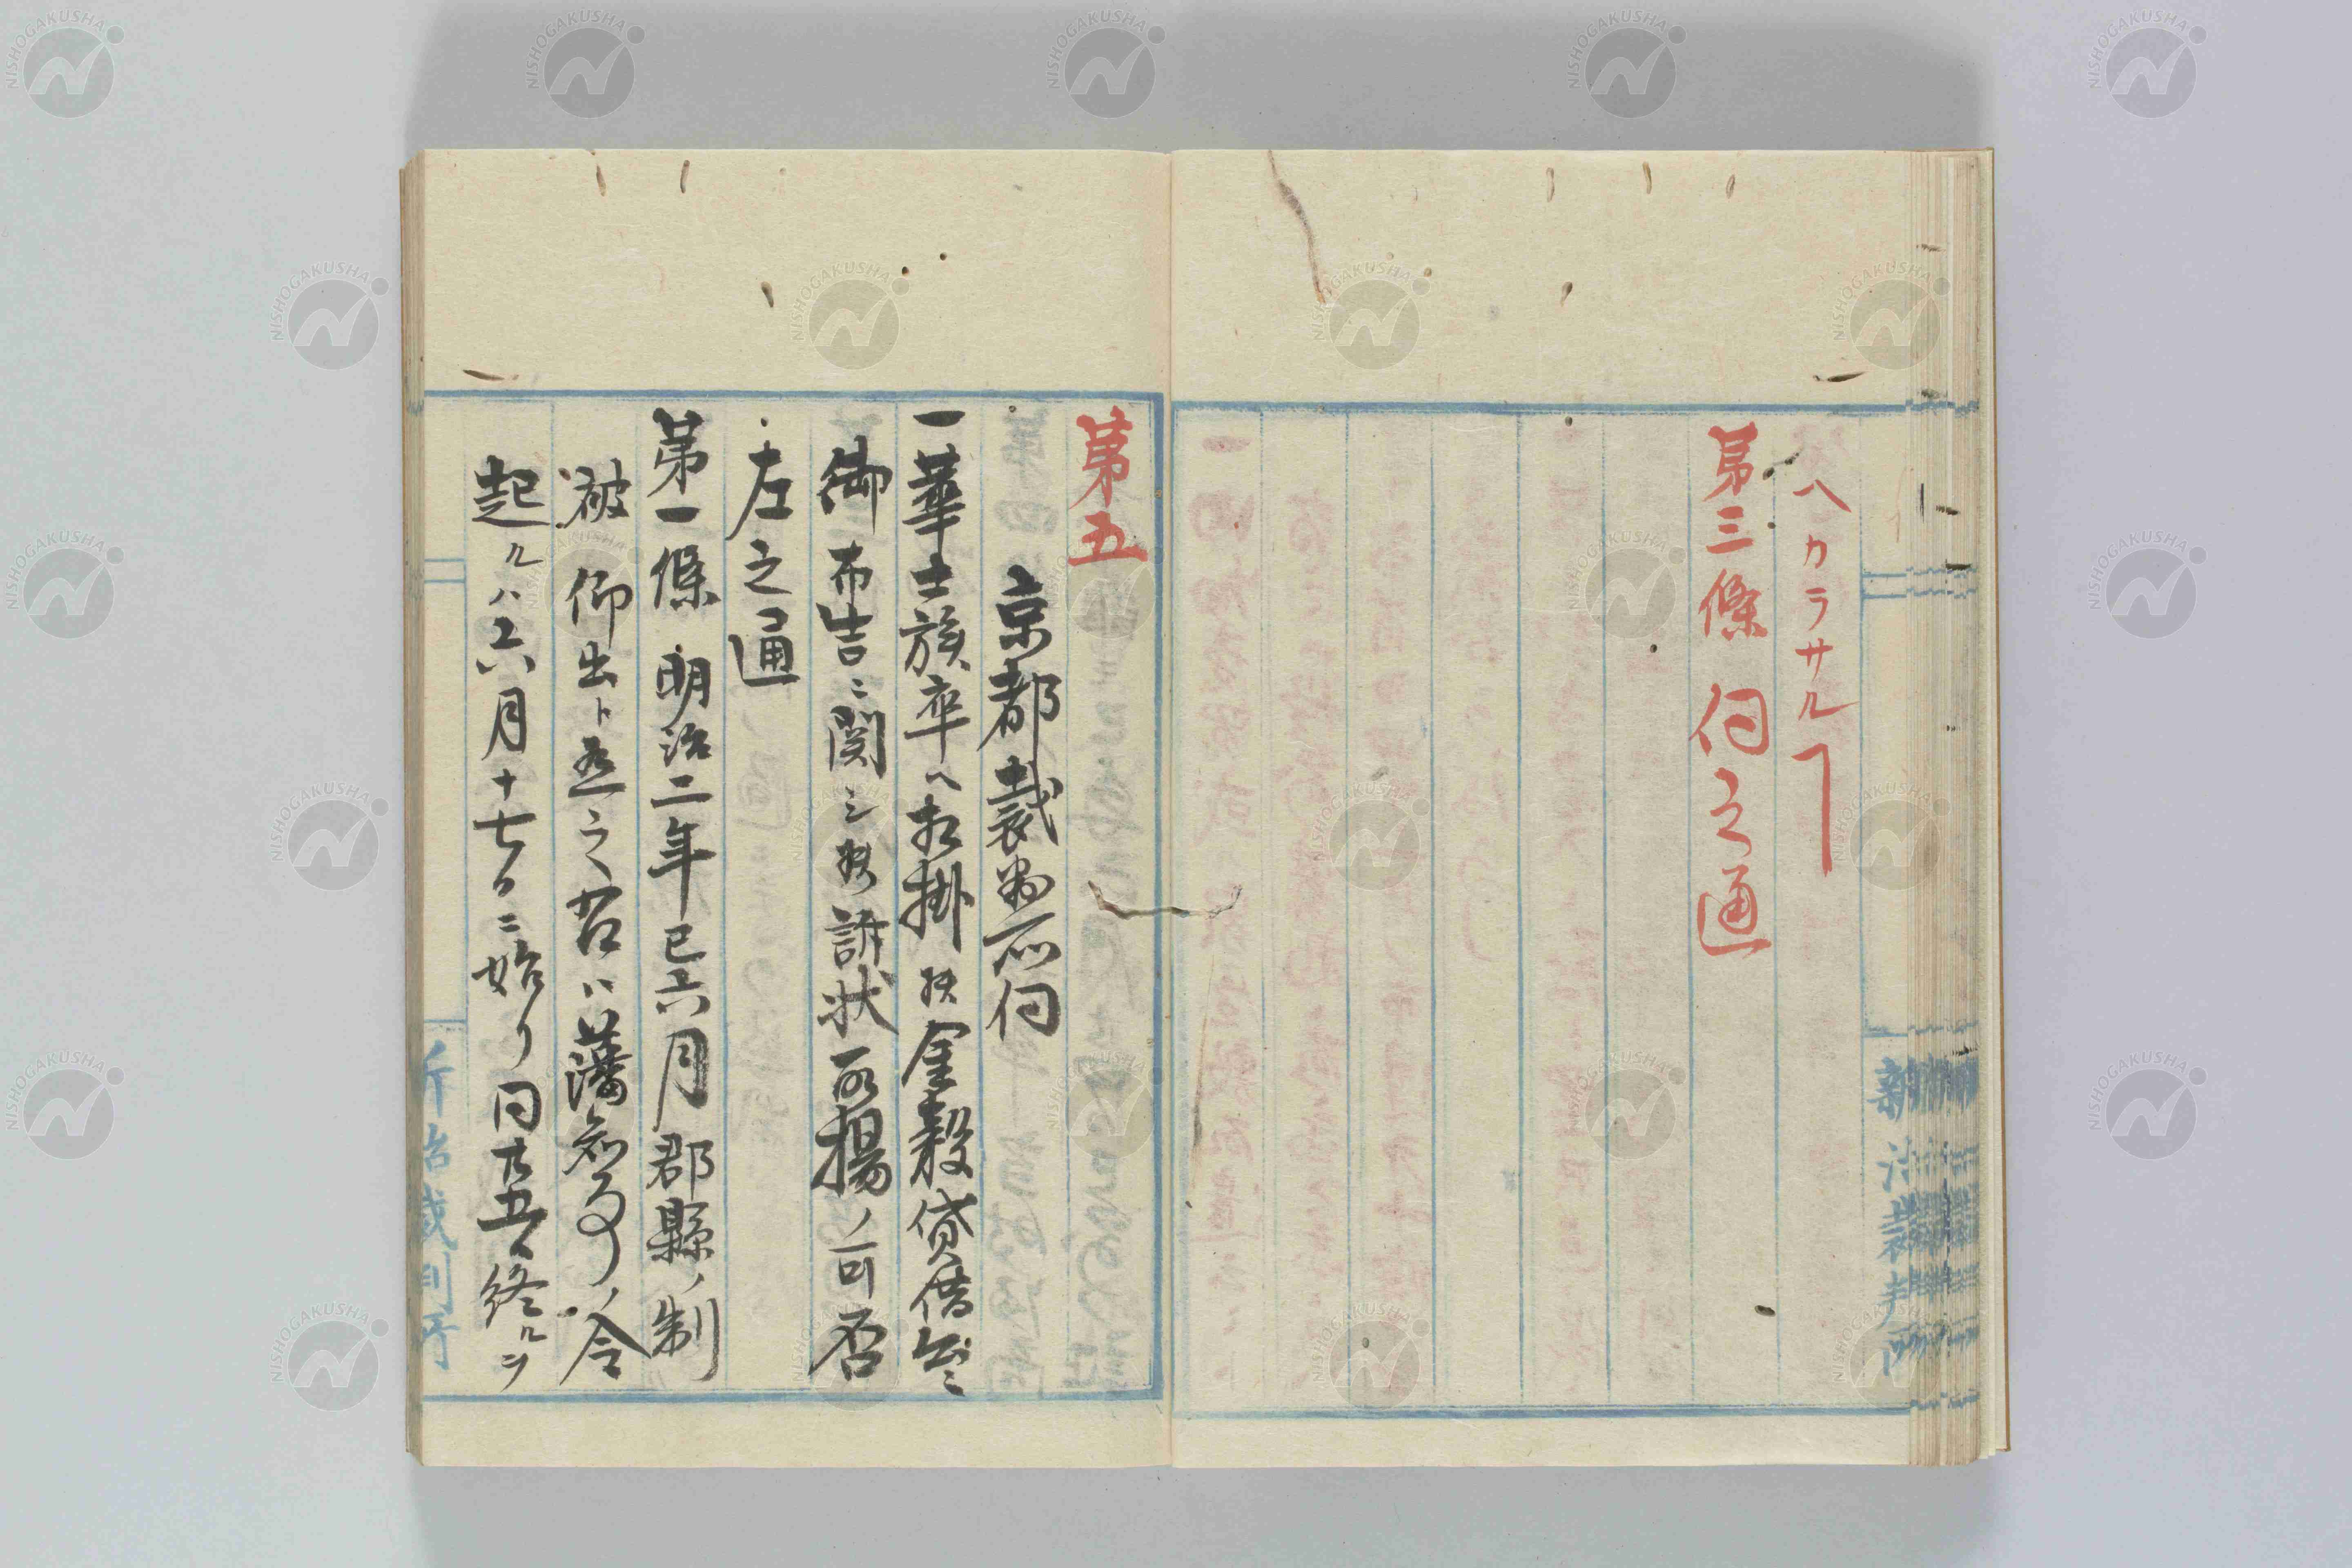 ヘカラサルヿ
第三條 伺之通
新治裁判所
第五
京都裁判所伺
一華士族卒ヘ相掛ル金穀貸借
御布告ニ関シ候訴状取揚ノ可否
左之通
第一條 明治二年己巳六月郡縣ノ制
被仰出ト並之名ハ藩知事ノ令
起ルハ六月十七日ニ始リ同廿五日終ルヲ
新治裁判所
NISHOGAKUSHA